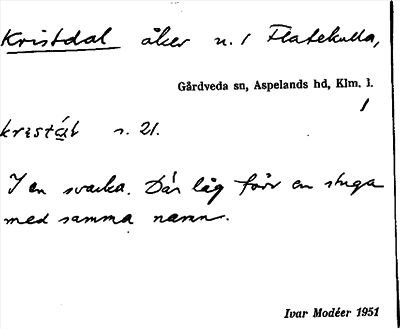 Kristdal åker n. 1 Flatekulla,
Gårdveda sn, Aspelands hd, Klm. l.
1
s. 21.
I en svacka. Där låg förr en stuga
med samma namn.
Ivar Modéer 1951